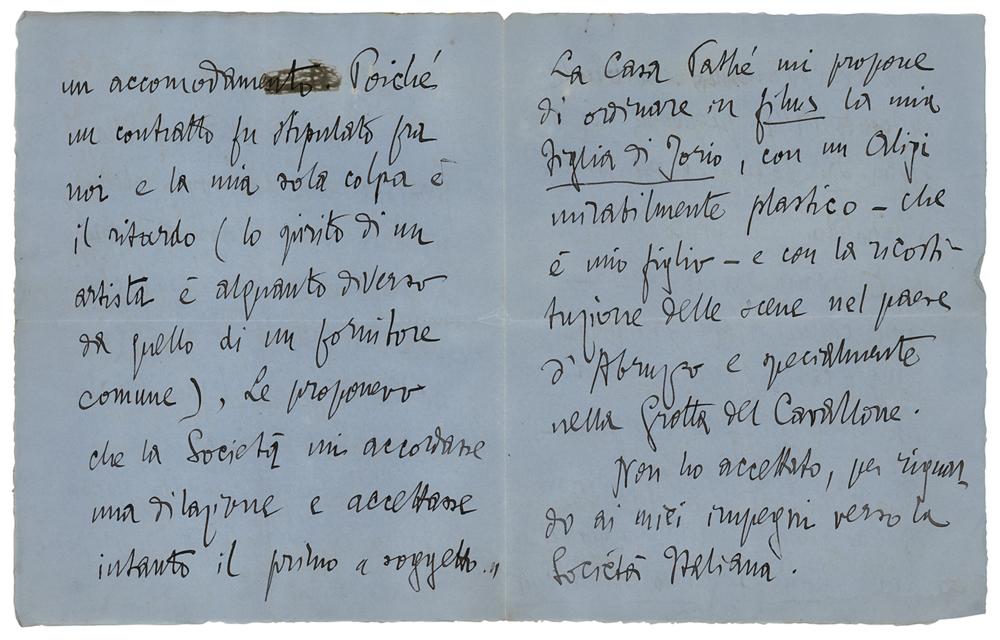 un accomodamento. Poiché
un contratto fu stipulato fra
noi e la mia sola colpa è
il ritardo (lo spirito di un
artista è alquanto diverso
da quello di un fornitore
comune), Le proponevo
che la Società mi accordasse
una dilazione e accettasse
intanto il primo "soggetto."
La Casa Pathé mi propone
di ordinare in films la mia
Figlia di Jorio, con un Aligi
mirabilmente plastico – che
è mio figlio – e con la ricosti-
tuzione delle scene nel paese
d'Abruzzo e specialmente
nella Grotta del Cavallone.
Non ho accettato, per riguar-
do ai miei impegni verso la
Società Italiana.